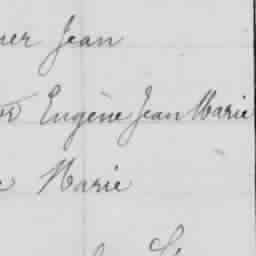 Jean
Eugène Jean Marie
Marie